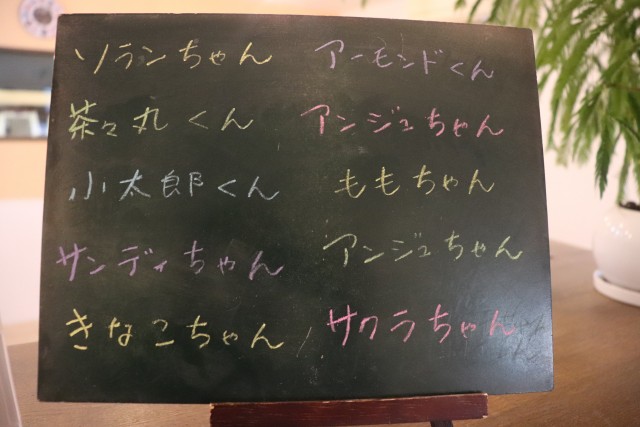 ソランちゃん
茶々丸くん
小太郎くん
サンディちゃん
きなこちゃん
アーモンドくん
アンジュちゃん
ももちゃん
アンジュちゃん
サクラちゃん